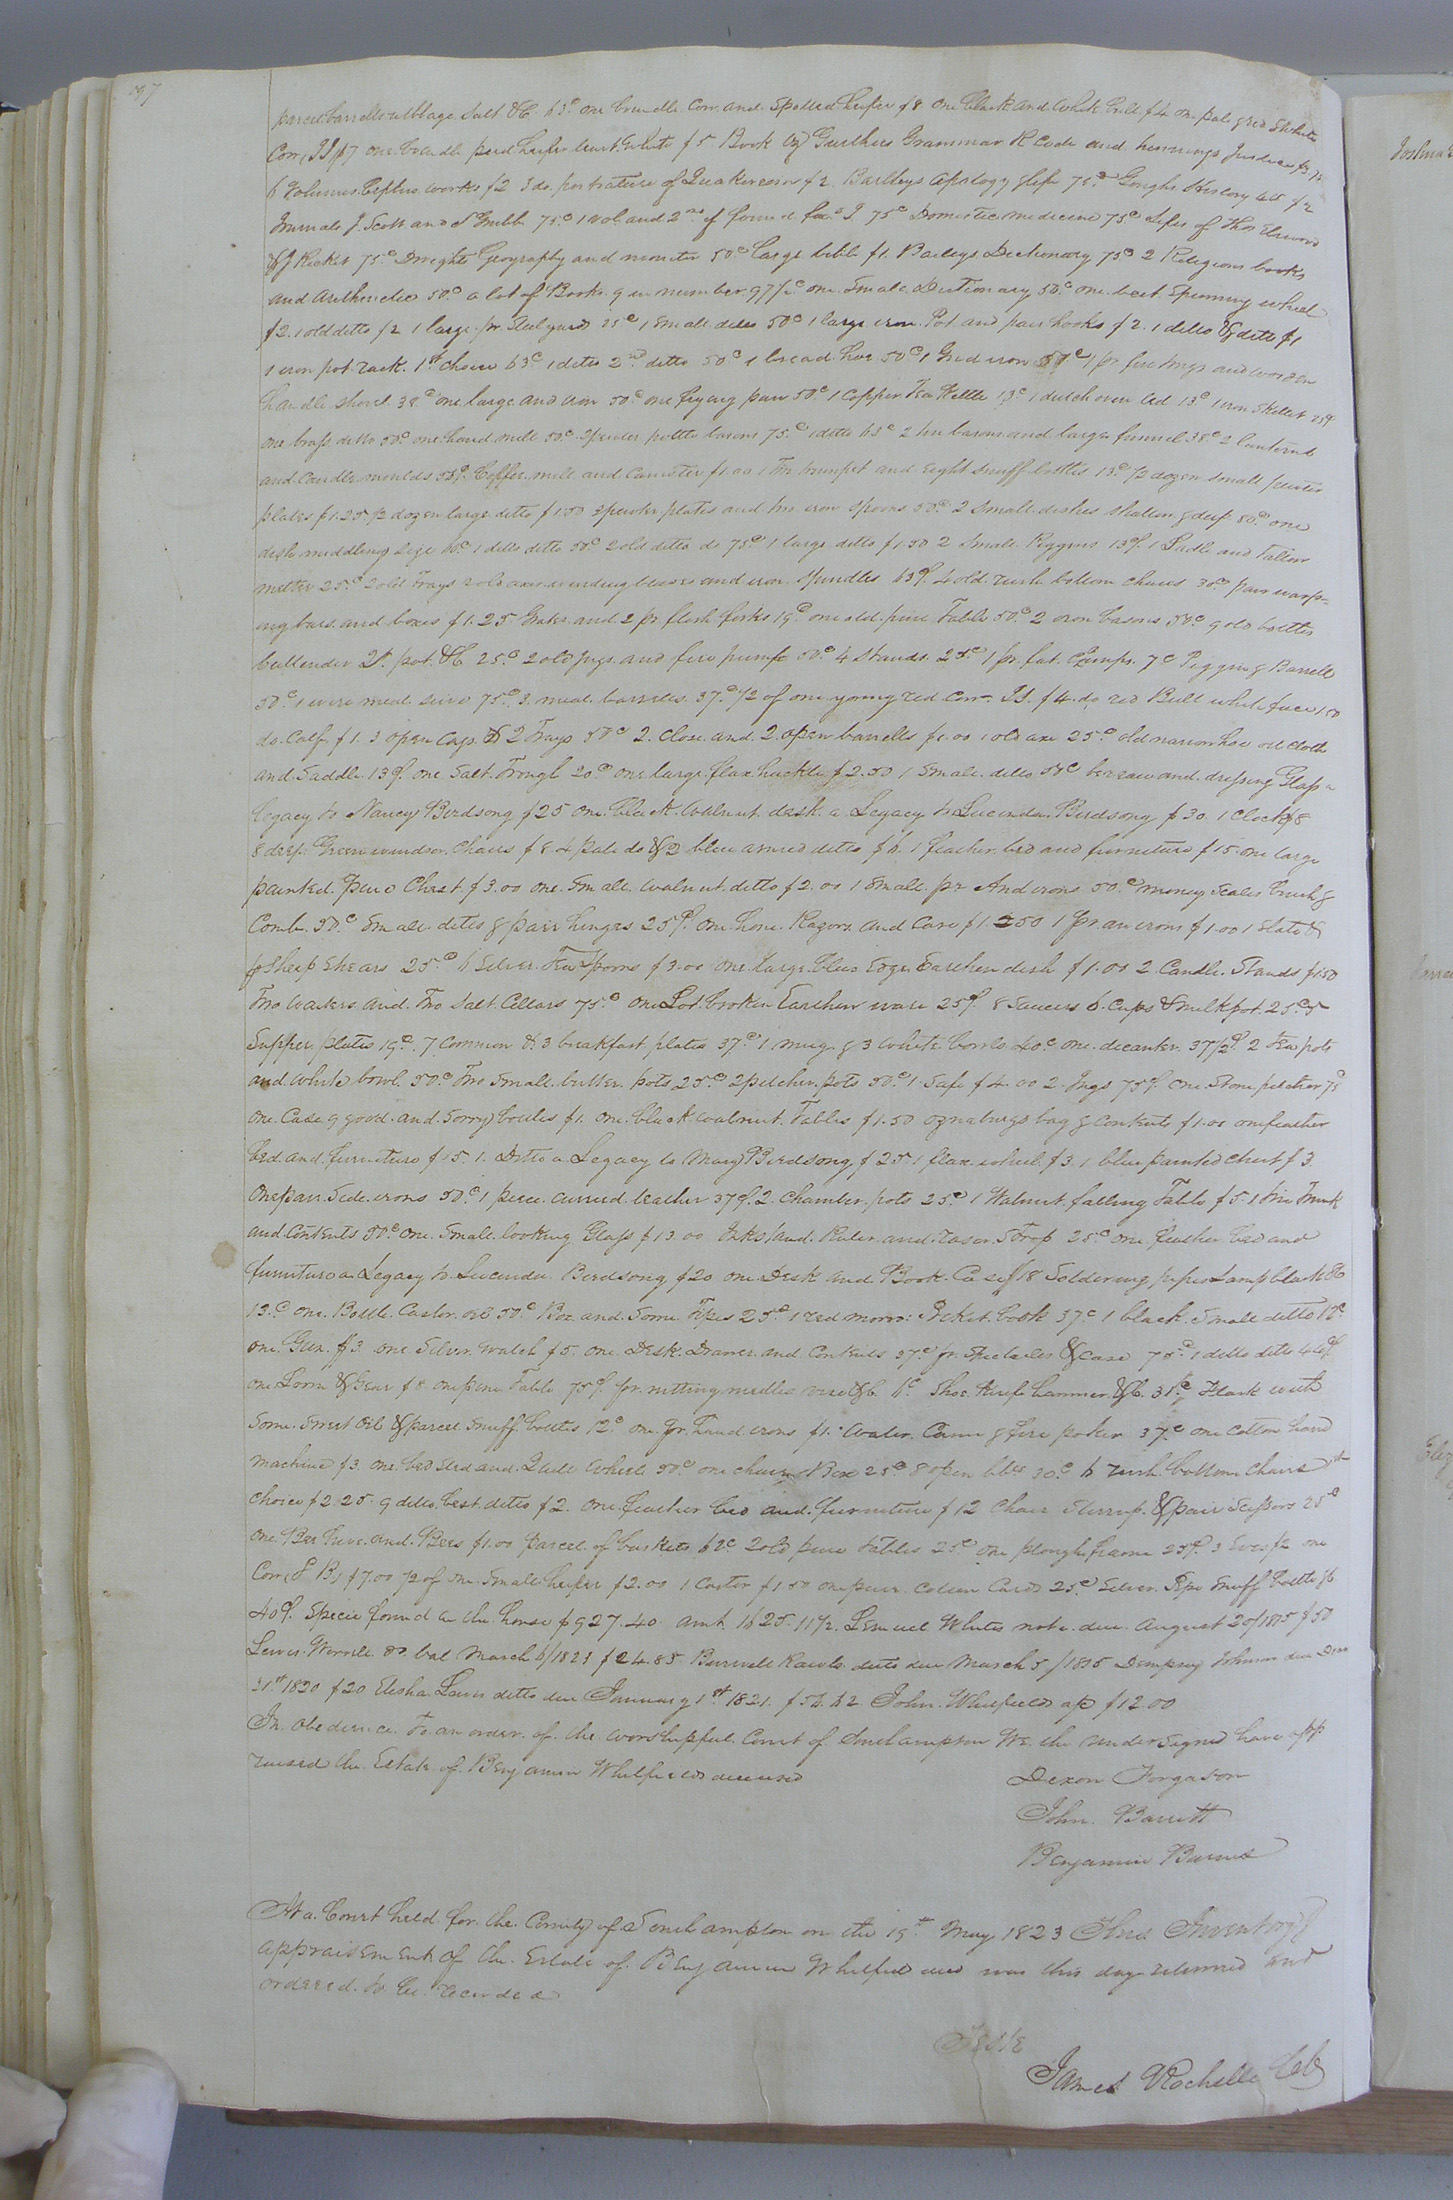 197
parcel barrells cabbage Salt &C 63c one brindle Cow and Spotted heifer $8 one black and white bull $4 one pale red & white
Cow, J J $7 one brindle pied heifer least white $5 Book by Gurthers Grammar R Code and hennings Justice
6 Volumes works $2 3 do. portrature of Quakerism $2 Barlleys apology & life 75c Goughs History 4 vo $2
Journals J. Scott and S Grubb 75c 1 vol and 2nd of found 75c Domestic medicine 75c Lifes of Thos Elwood
& J Ricket 75c Dwights Geography and monitor 50c large bible $1. Baileys Dictionary 75c 2 Religious books
and Arithmetic 50c a lot of Books 9 in number 97½c one Small Dictionary 50c one best Spinning wheel
$2. 1 old ditto $2 1 large pr Stilyards 25c 1 Small ditto 50c 1 large iron Pot and pair hooks $2. 1 ditto & ditto $1
1 iron pot rack 1st choice 63c 1 ditto 2nd ditto 50c 1 broad hoe 50c 1 Grid iron 1 pr fire tongs and wooden
handle shovel 38c one large and iron 50c one frying pan 50c 1 Copper Tea Kettle 13c 1 dutch oven Led 13c 1 iron Skillet 25c
one brass ditto 50c one hand mill 50c 3 pewter pottle basons 75c 1 ditto 63c 2 tin basons and large funnel 38c 2 lanterns
and Candle moulds 58c Coffee mill and Canister $1.00 1 Tin trumpet and Eight snuff bottles 13c ½ dozen small pewter
plates $1.25 ½ dozen large ditto $1.50 3 pewter plates and tin iron Spoons 50c 2 Small dishes shallow & deep 80c one
dish middling size 60c 1 ditto ditto 50c 2 old ditto do 75c 1 large ditto $1.50 2 Small Piggins 13c 1 Ladle and Tallow
melter 25c 2 old Trays 2 old axes winding blades and iron Spindles 63c 4 old rush bottom chairs 30c pair warp=
ing bars and boxes $1.25 Grater and 2 pr flesh forks 19c one old pine Table 50c 2 iron basons 50c 9 old bottles
Cullender 2 pot &C 25c 2 old jugs and fire pump 50c 4 Stands 25c 1 pr fat Cramps 7c Piggin & Barrell
50c 1 wire meal Sieve 75c 3 meal barrells 37c ½ of one young red Cow J J $4. do red Bull white face 1 50
do Calf $1. 3 open Casks & 2 Trays 50c 2 Close and 2 open barrells $1.00 1 old axe 25c old narrow hoe oil Cloth
and Saddle 13c one Salt Trough 20c one large flax hackle $2.50 1 Small ditto 50c bureau and dressing Glass a
legacy to Nancy Birdsong $25 one black walnut desk a Legacy to Lucinda Birdsong $30. 1 Clock $8
8 deep Green windsor Chairs $8 4 pale do & 2 blue armed ditto $6. 1 feather bed and furniture $15 one large
painted Pine Chest $3.00 one Small walnut ditto $2.00 1 Small pr And irons 50c money Scales brush &
Comb 30c Small ditto & pair hinges 25c one hone Razors and Case $1.250 1 pr. an irons $1.00 1 Slate &
pr Sheep Shears 25c 6 Silver Tea Spoons $3.00 one large blue Edge Earthen dish $1.00 2 Candle Stands $1.50
Two waiters and Two Salt Cellars 75c one Lot broken Earthen ware 25c 8 Saucers 6 Cups & milk pot 25c 5
Supper plates 19c 7 Common & 3 breakfast plates 37c 1 mug & 3 white bowls 40c one decanter 37½c 2 tea pots
and white bowl 50c Two Small butter pots 25c 2 pitcher pots 50c 1 Safe $4.00 2 Jugs 75c one Stone pitcher 75
one Case 9 good and Sorry bottles $1. one black walnut Table $1.50 oznaburgs bag & Contents $1.00 one feather
bed and furniture $15. 1 Ditto a Legacy to Mary Birdsong $25 1 flax wheel $3. 1 blue painted Chest $3
One pair Side irons 50c 1 piece curried leather 37c 2 Chamber pots 25c 1 Walnut falling Table $5 1 Trunk
and Contents 50c one Small looking Glass $13.00 Inkstand Ruler and rasor Strop 25c one feather bed and
furniture a Legacy to Lucinda Birdsong $20 one Desk and Book Case $18 Soldering pipes Lampblack &C
13c one Bottle Castor oil 50c Box and Some Pipes 25c 1 red moro: Pocket book 37c 1 black Small ditto 12c
one Gun $3 one Silver watch $5. one Desk Drawer and Contents 37c pr Spectacles & Case 75c 1 ditto ditto
one Loom & Gear $8 one pine Table 75c pr nitting needles vice &C Shoe Knife hammer &C 31c Flask with
Some Sweet Oil & parcel Snuff bottles 12c one pr. hand irons $1. Water Cann & fire poker 37c one Cotton hand
machine $3. one bed Sted and Quill Wheel 50c one churn Box 25c 8 open bbls 30c 6 rush bottom Chairs 1st
Choice $2.25 9 ditto best ditto $2 one feather bed and furniture $12 Chair Stirrup & pair Scissors 25c
one Bee hive and Bees $1.00 parcel of baskets 62c 2 old pine tables 25c one plough frame 25c 3 Ewes $2 one
Cow (S B) $7.00 ½ of one Small heifer $2.00 1 Castor $1.50 one pair Cotton Cards 25c Silver Pipe Snuff bottle
40c Specie found in the house $927.40 amt. 1625.11½ Lemuel Whites note due August 20/1815 $50
Lewis Worrell do bal March 6/1821 $24.85 Burwell Rawls ditto due March 5/1815 Dempsey Johnson due Decr
31st 1820 $20 Elisha Lewis ditto due January 1st 1821 $56.62 John Whitfield ap $12.00
In obedience To an order of the worshipful Court of Southampton We the undersigned have app
raised the Estate of Benjamin Whitfield deceased
Dixon Forgason
John Barrett
Benjamin Barnes
At a Court held for the County of Southampton on the 19th May 1823 This Inventory &
appraisement of the Estate of Benjamin Whitfield decd was this day returned and
ordered to be recorded
Teste
James Rochelle CC